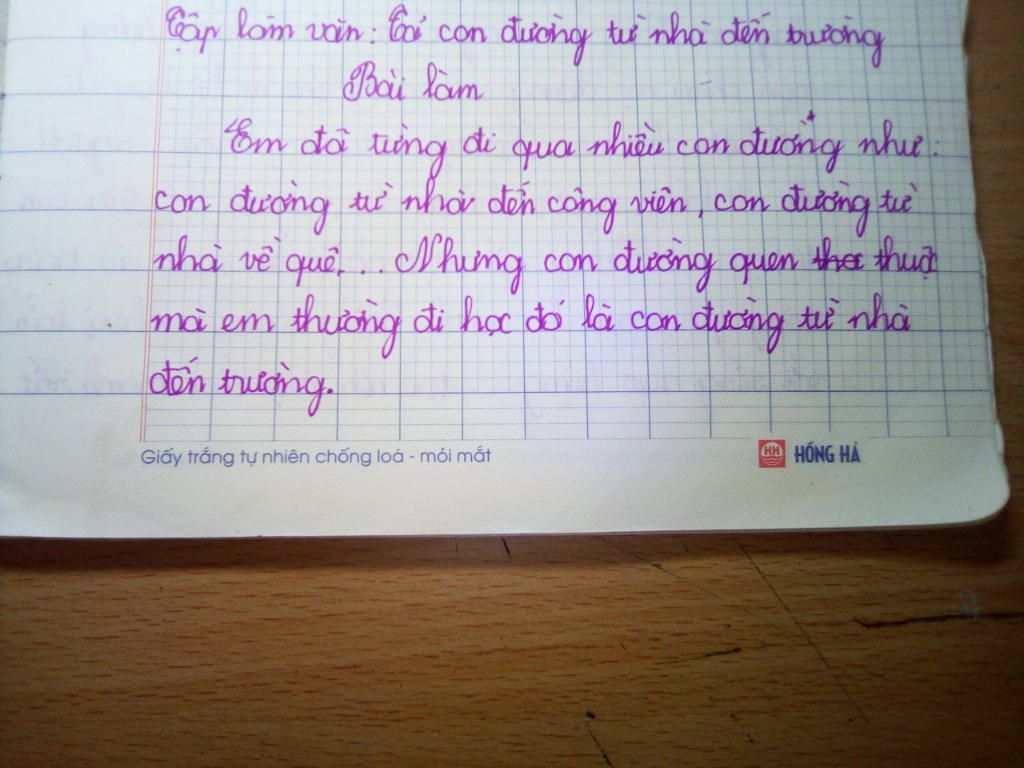 Tập làm văn: Tả con đường từ nhà đến trường
Bài làm
Em đã từng đi qua nhiều con đường như:
con đường từ nhà đến công viên, con đường từ
nhà về quê,... Nhưng con đường quen thuộc
mà em thường đi học đó là con đường từ nhà
đến trường.
Giấy trắng tự nhiên chống loá - mỏi mắt
HH HỒNG HÀ